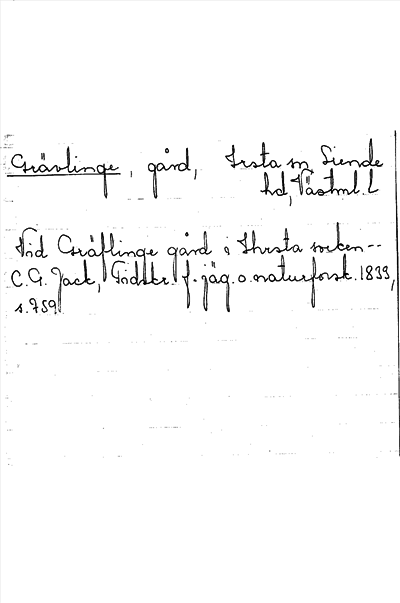 Grävlinge, gård, Irsta sn Siende
hd, Västml. L
Vid Gräflinge gård i Ihrsta socken--
C.G. Jack, Tidskr. f. jäg. o. naturforsk. 1833,
s. 759